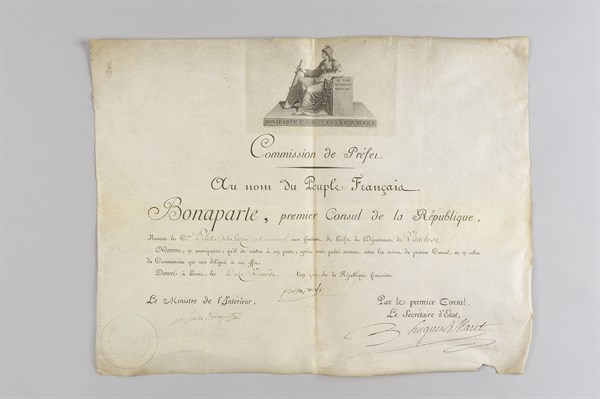 AU NOM
DU PEUPLE
FRANÇAIS
BONAPARTE 1ER CONSUL DE LA REPUBLIQUE
Commission de Préfet.
Au nom du Peuple Français.
Bonaparte, premier Consul de la République,
Nomme le Cen aux fonctions de Préfet du Département de Vaucluse
Ordonne, en conséquence, qu'il se rendra à son poste, après avoir prêté serment, entre les mains du premier Consul, ou de celles
du Commissaire qui sera délégué à cet effet.
Donné à Paris, le Ventôse l'an de la République Française.
Le Ministre de l'Intérieur,
Par le premier Consul.
Le Secrétaire d'État,
Hugues B. Maret